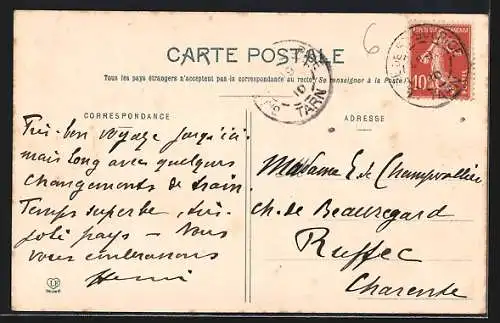 CARTE POSTALE
Tous les pays étrangers n'acceptent pas la correspondance au recto (Se renseigner à la Poste)
CORRESPONDANCE
Très bon voyage jusqu'ici
mais long avec quelques
changements de train
Temps superbe, très
joli pays - Nous
vous embrassons
Henri
ADRESSE
Madame E. de Champvallier
Ch. de Beauregard
Ruffec
Charente
6
TARN
10